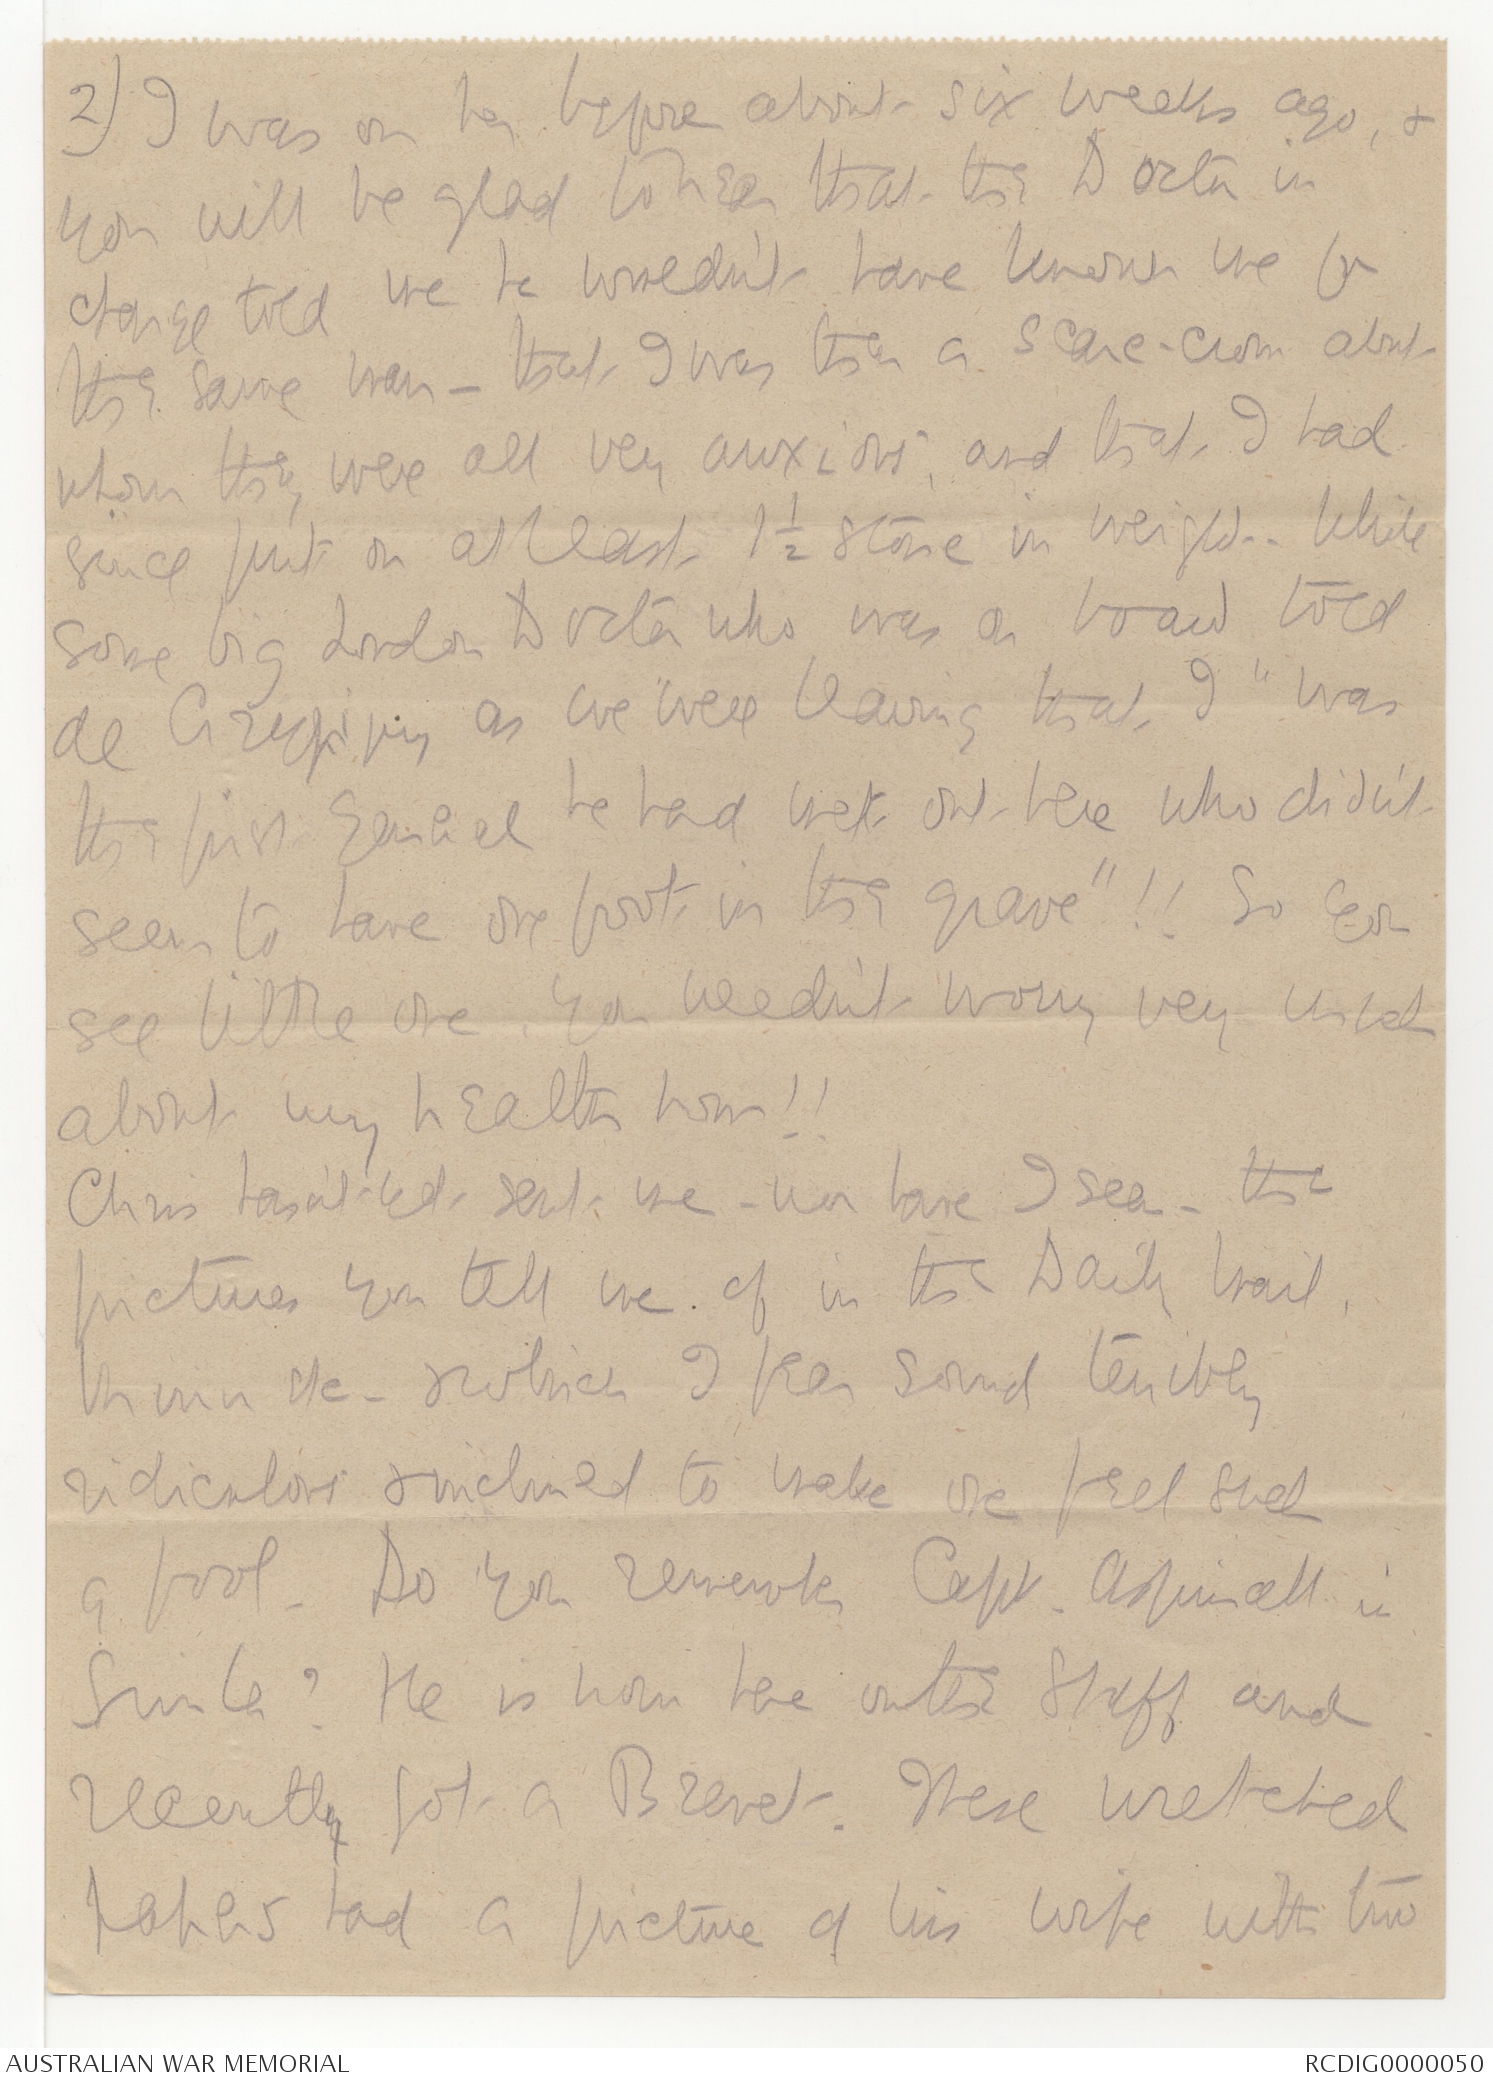 2) I was on her before about six weeks ago, &
you will be glad to hear that the Doctor in
charge told me he wouldn't have known me for
the same man - that I was then a scare-crow about
whom they were all very anxious, and that I had
since put on at least 1½ stone in weight. While
some big London Doctor who was on board told
de Crespigny as we were leaving that I "was
the first General he had met out here who didn't
seem to have one foot in the grave"!! So you
see little one, you needn't worry very much
about my health now!!
Chris hasn't yet sent me - nor have I seen - the
pictures you tell me of in the Daily Mail,
which I fear sound terribly
ridiculous & inclined to make one feel such
a fool - Do you remember Capt. Aspinall in
Simla? He is now here on the Staff and
recently got a Brevet. These wretched
papers had a picture of his wife with two
AUSTRALIAN WAR MEMORIAL
RCDIG0000050